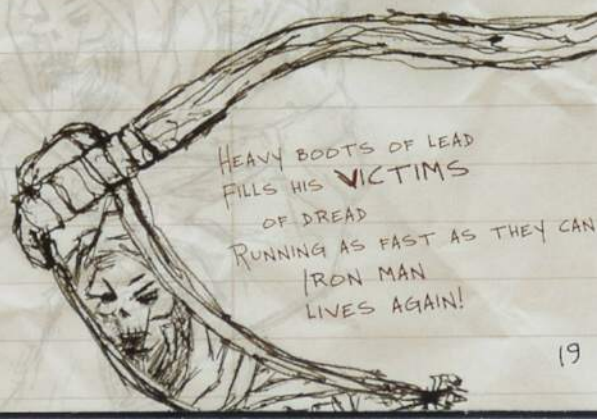 HEAVY BOOTS OF LEAD
FILLS HIS VICTIMS
OF DREAD
RUNNING AS FAST AS THEY CAN
IRON MAN
LIVES AGAIN!
19